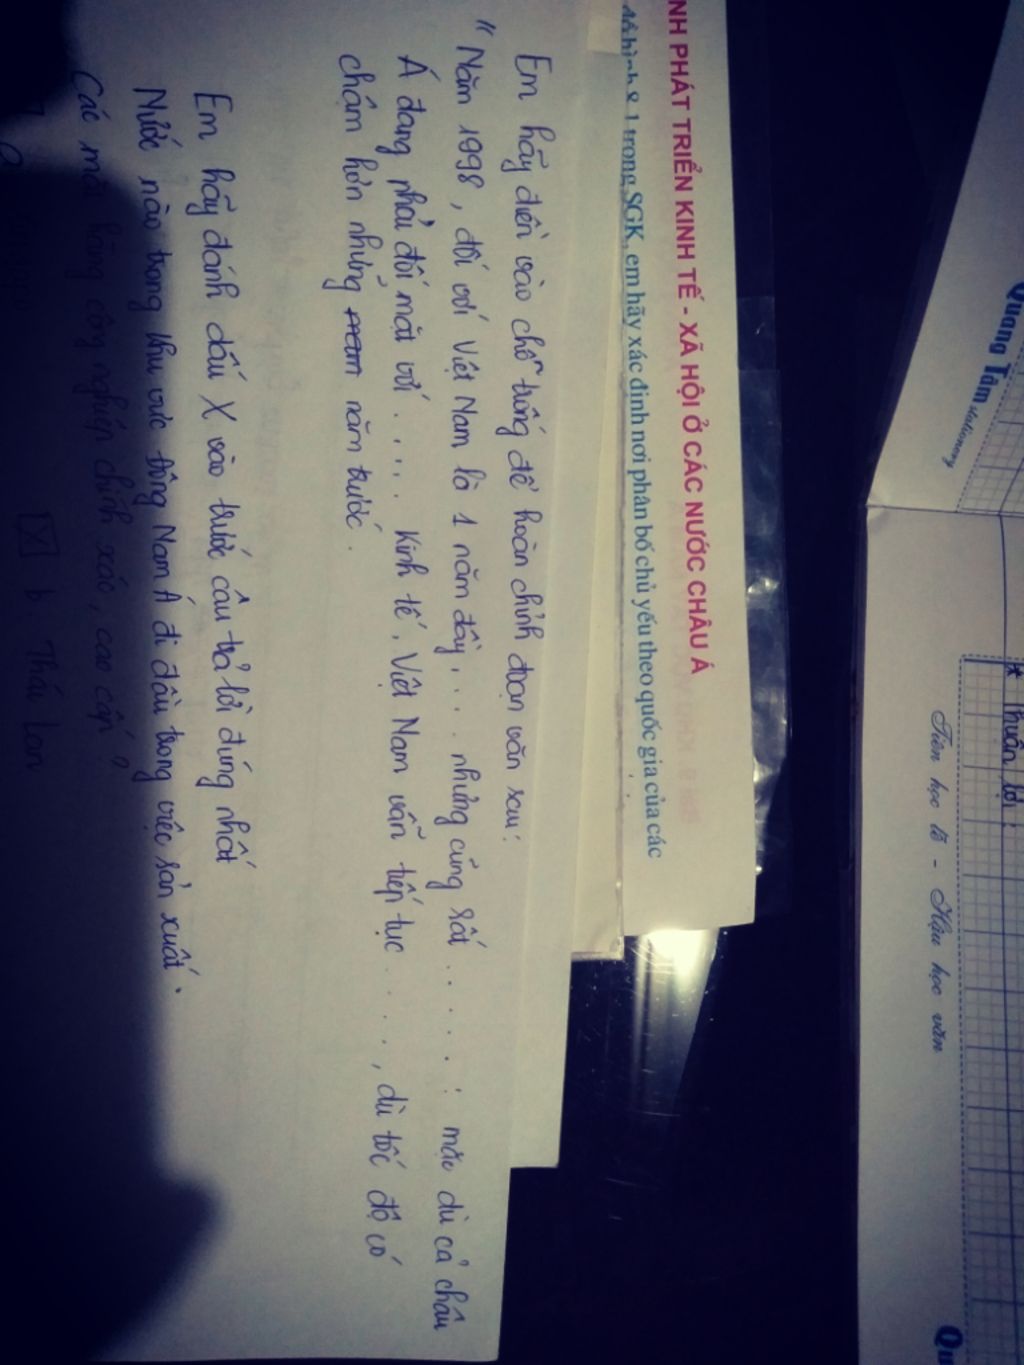 NH PHÁT TRIỂN KINH TẾ - XÃ HỘI Ở CÁC NƯỚC CHÂU Á
8.1 trong SGK, em hãy xác định nơi phân bố chủ yếu theo quốc gia của các
Em hãy điền vào chỗ trống để hoàn chỉnh đoạn văn sau:
"Năm 1998, đối với Việt Nam là 1 năm đầy... nhưng cũng rất .....: mặc dù cả châu
Á đang phải đối mặt với ..... Kinh tế, Việt Nam vẫn tiếp tục ...., dù tốc độ có
chậm hơn những năm trước.
Em hãy đánh dấu X vào trước câu trả lời đúng nhất
Nước nào trong khu vực Đông Nam Á đi đầu trong việc sản xuất.
Các mặt hàng công nghiệp chính xác, cao cấp?
X b Thái Lan
Quang Tâm stationery
* Thuận lợi:
Tiên học lễ - Hậu học văn
Qu